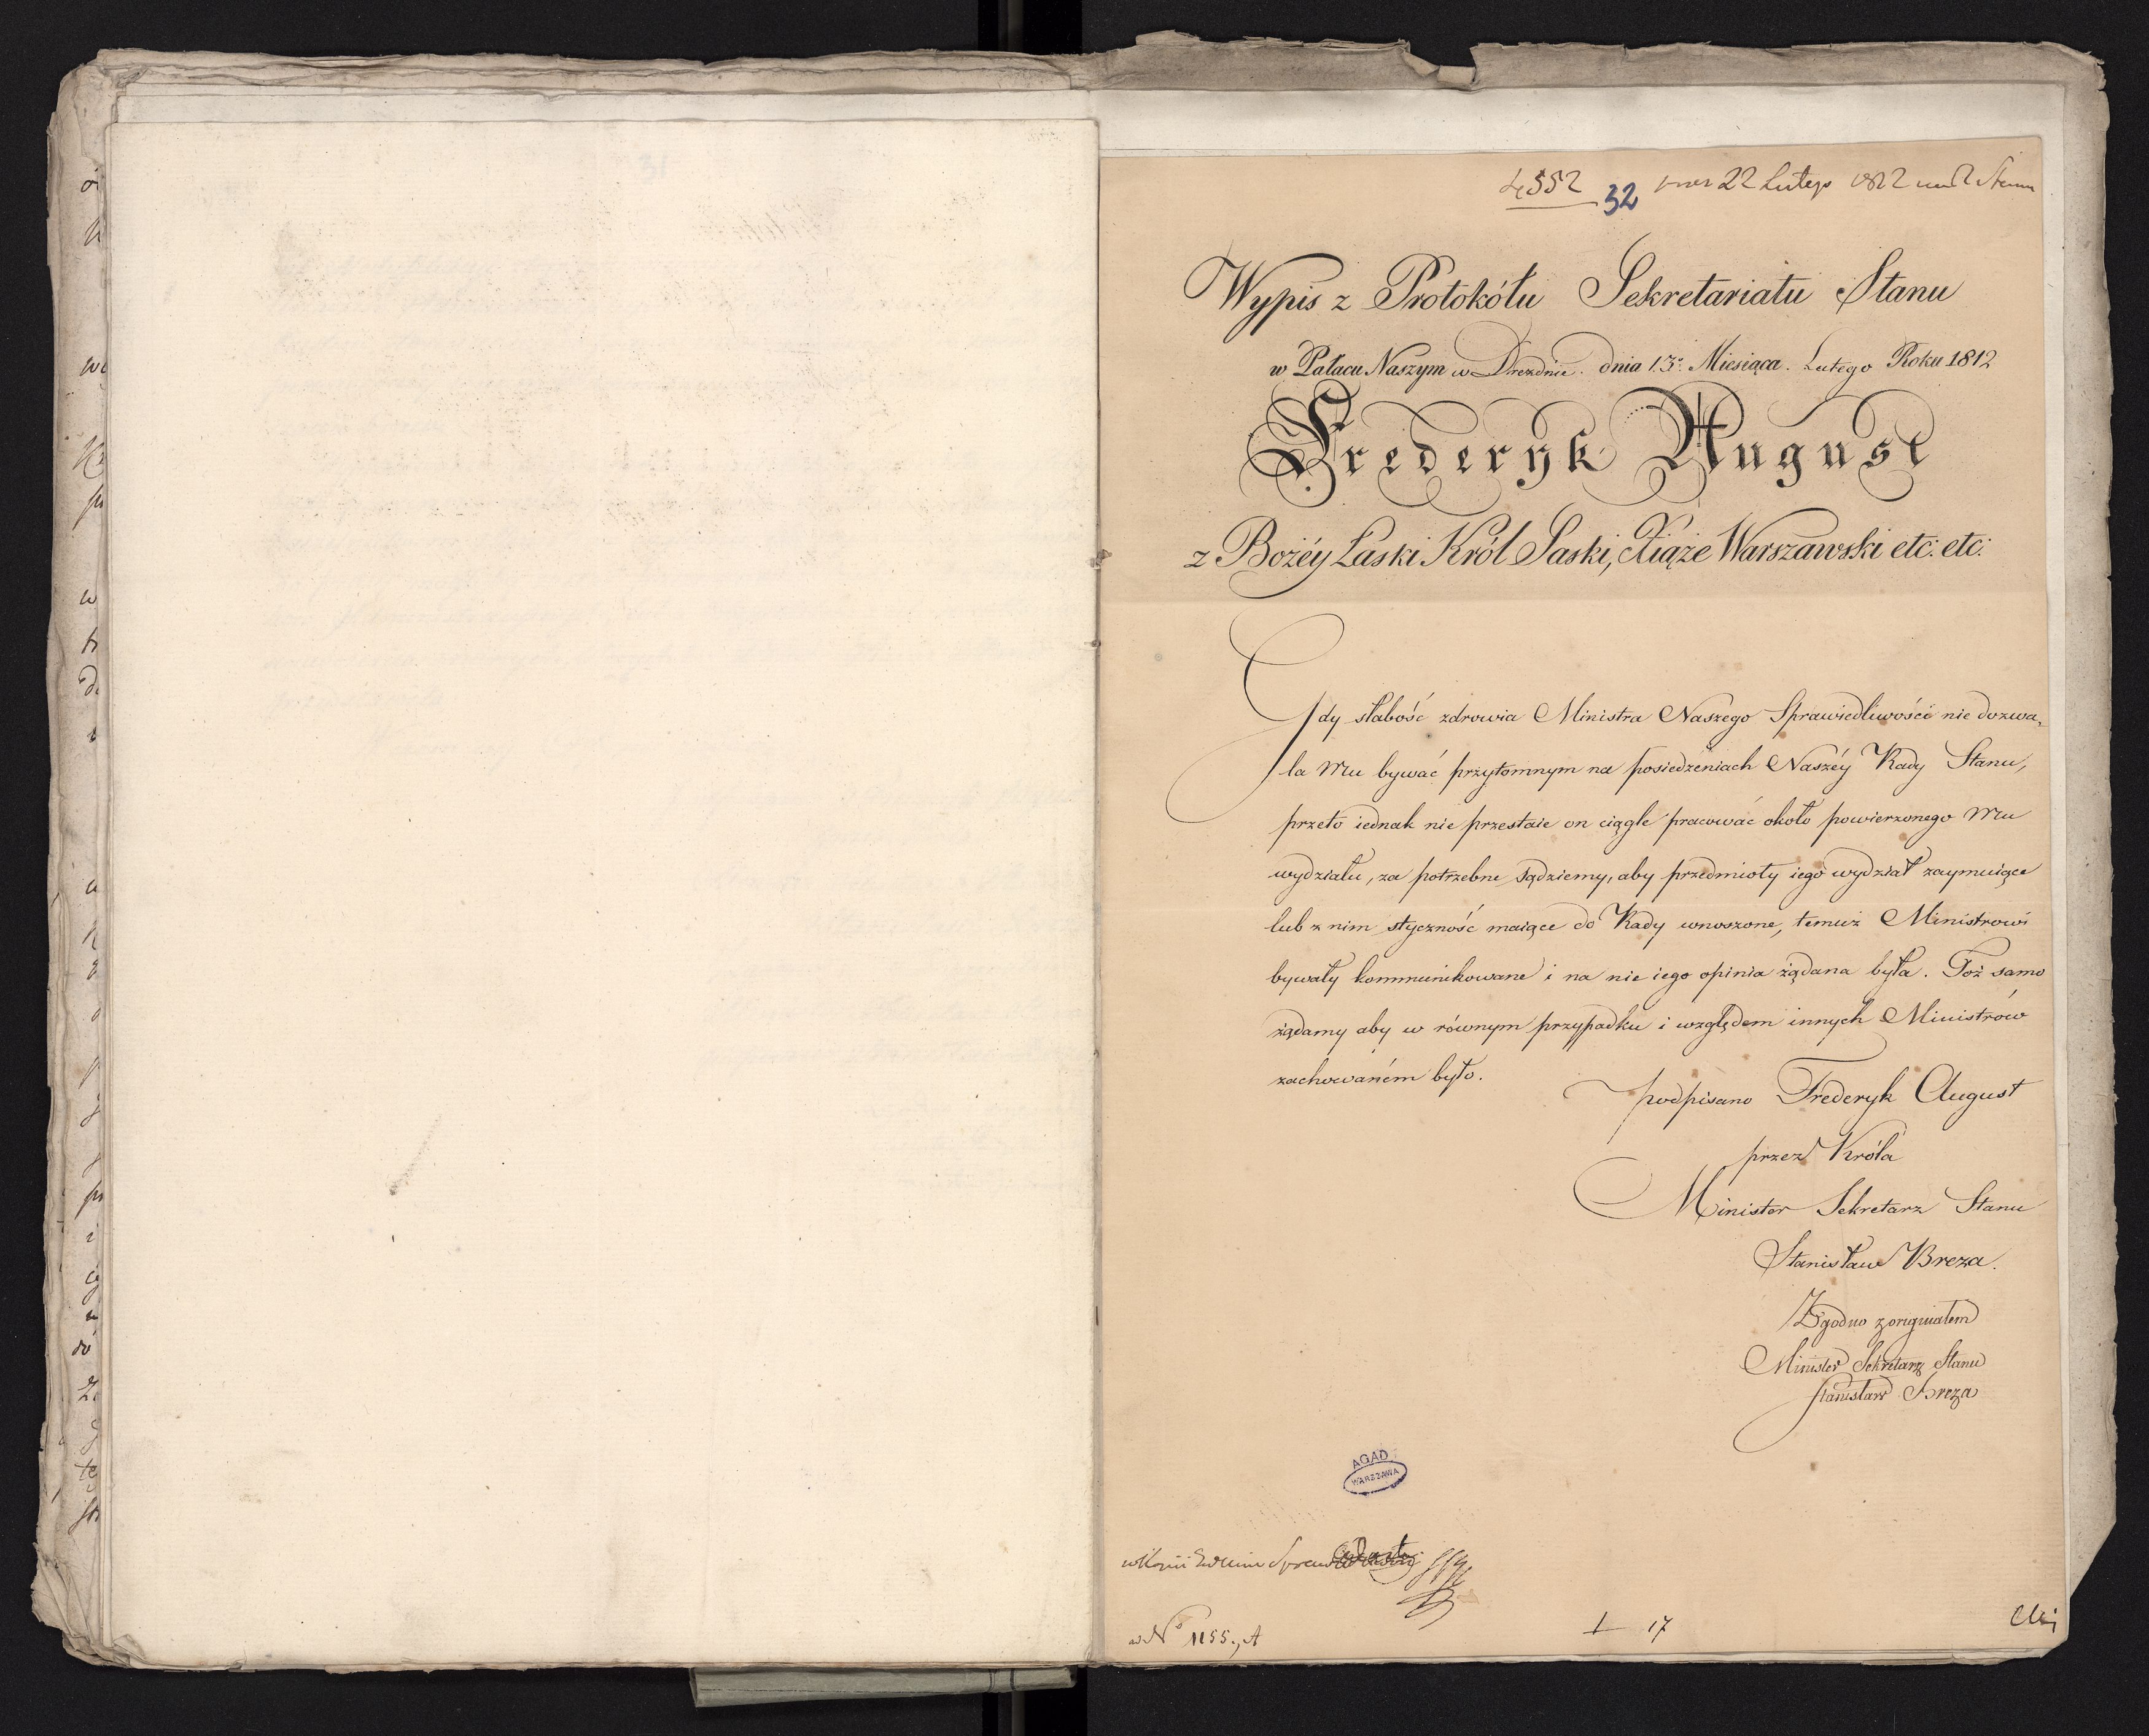 4552 32 22 Lutego
Wypis z Protokółu Sekretariatu Stanu
w Pałacu Naszym w Dreznie. dnia 13º Miesiąca. Lutego Roku 1812
Frederyk August
z Bożéy Łaski Król Saski, Xiąże Warszawski etc: etc:
Gdy słabość zdrowia Ministra Naszego Sprawiedliwości nie dozwa,
la Mu bywać przytomnym na posiedzeniach Naszéy Rady Stanu,
przeto iednak nie przestaie on ciągle pracować około powierzonego Mu
wydziału, za potrzebne sądziemy, aby przedmioty iego wydział zaymuiące
lub z nim styczność maiące do Rady wnoszone, temuż Ministrowi
bywały kommunikowane i na nie iego opinia żądana była. Toż samo
żądamy aby w równym przypadku i względem innych Ministrów
zachowaném było.
podpisano Frederyk August
przez Króla
Minister Sekretarz Stanu
Stanisław Breza.
Zgodno z oryginałem
Minister Sekretarz Stanu
Stanisław Breza
AGAD
WARSZAWA
w Nº 1155., A
1 17